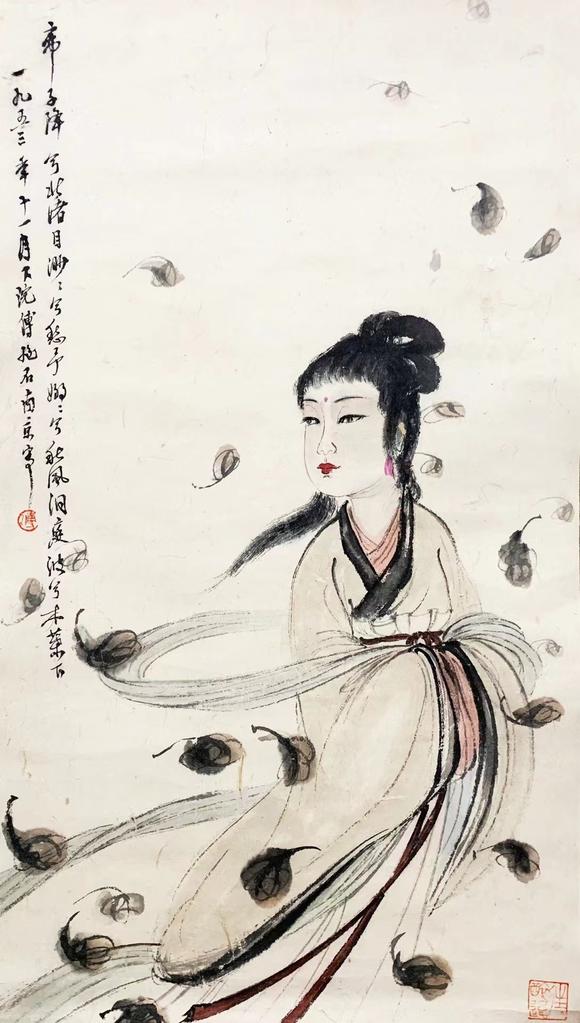 帝子降兮北渚目渺〻兮愁予嫋〻兮秋風洞庭波兮木葉下
一九五三年十一月下浣傅抱石南京寫
傅